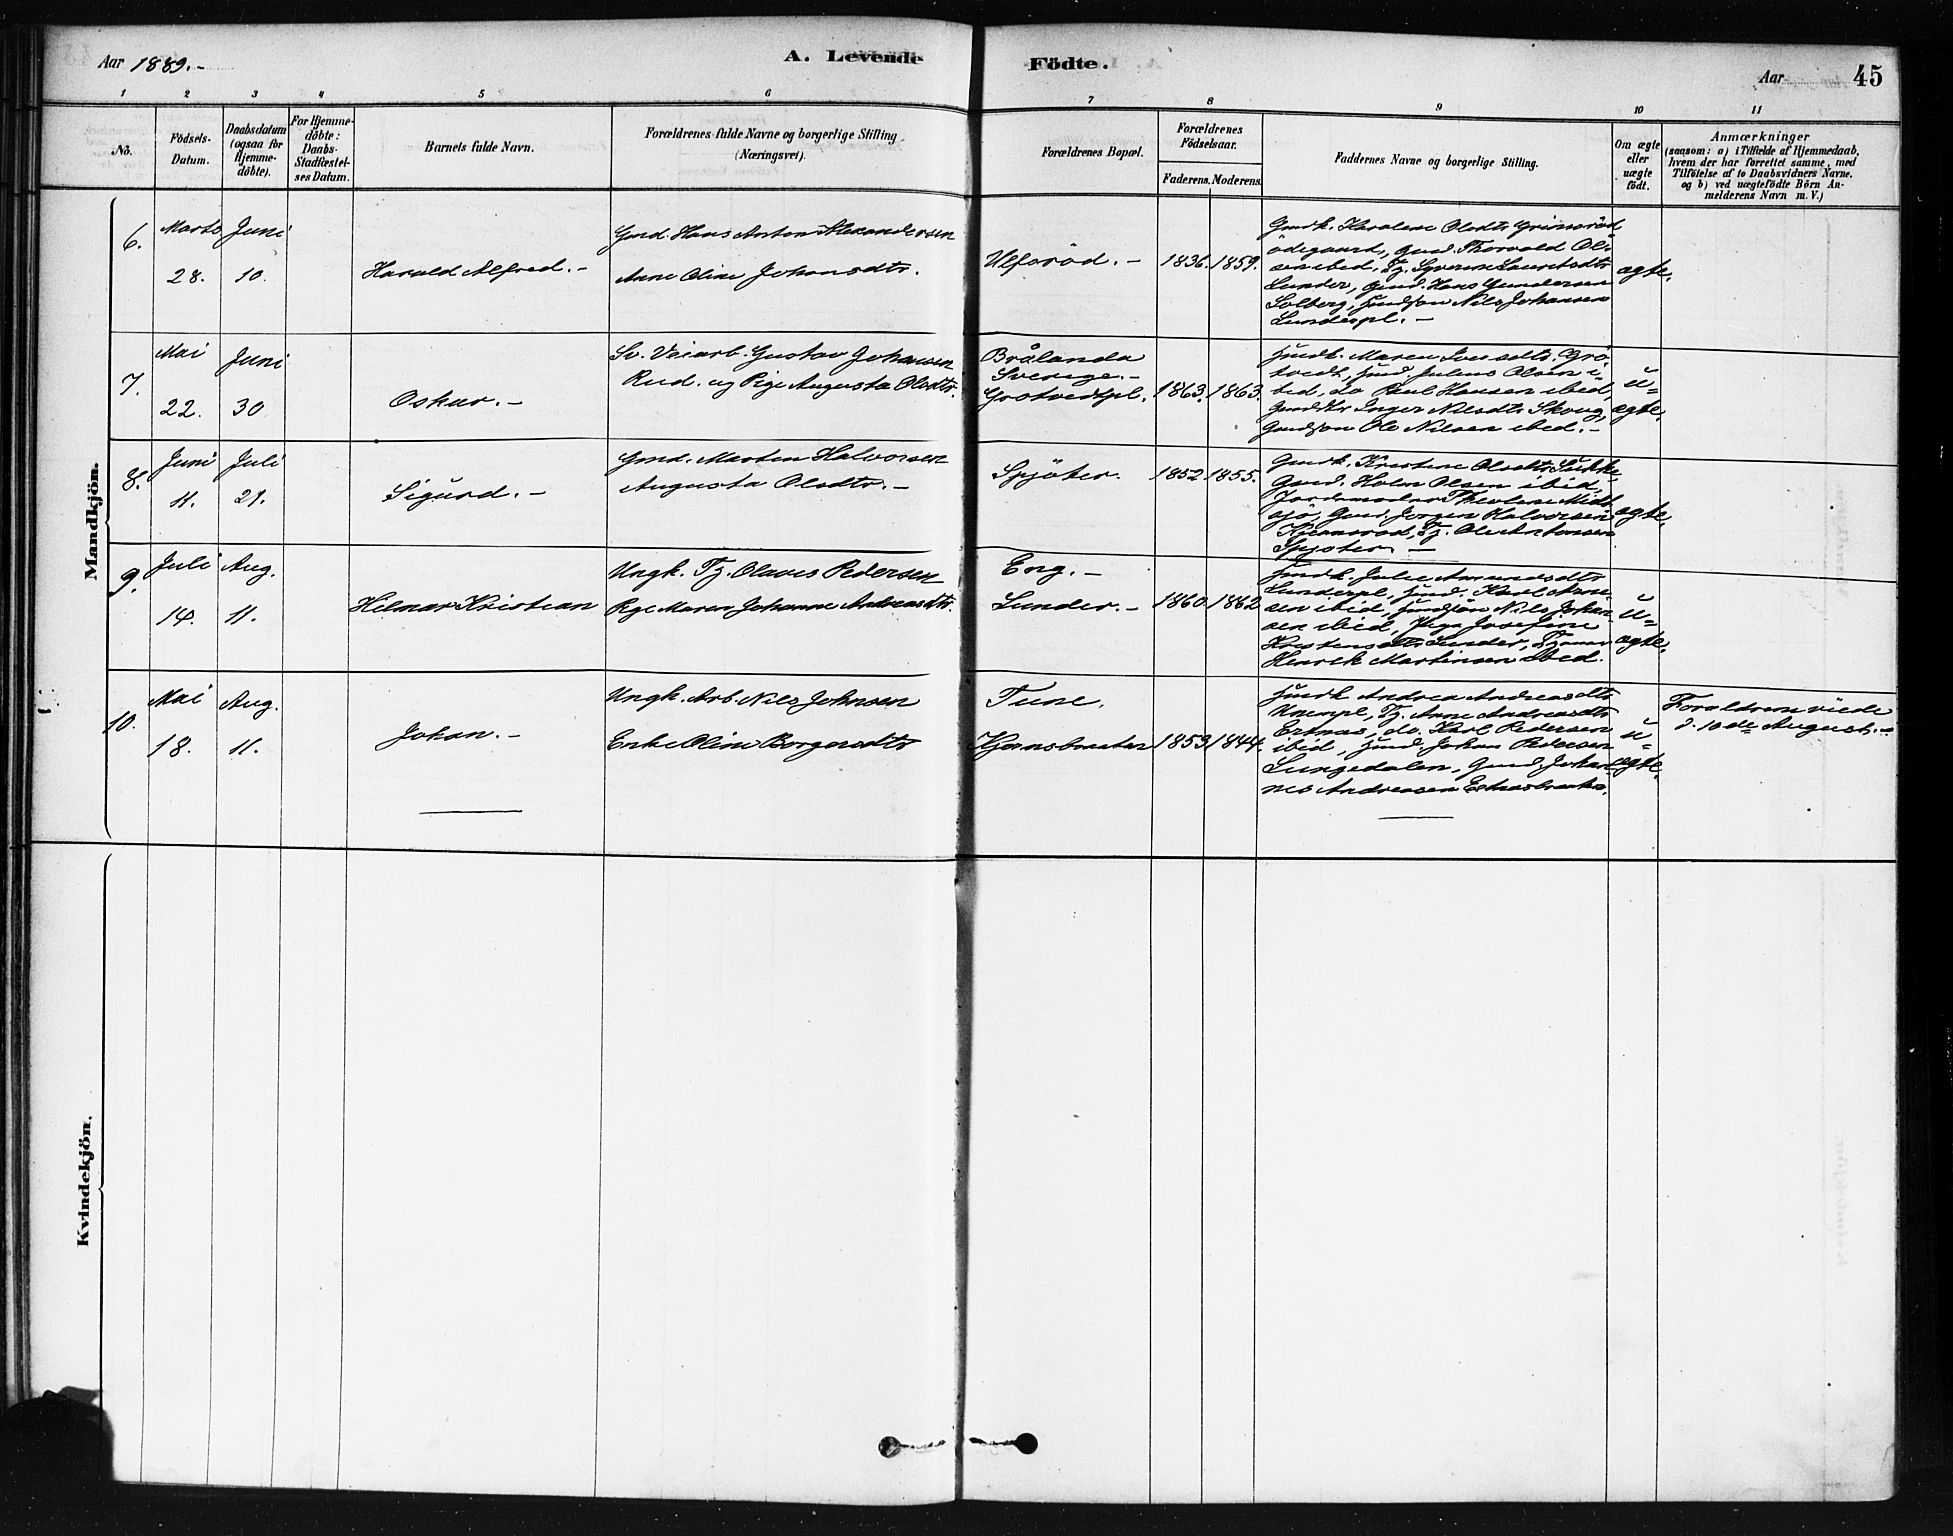 Aar 1889.-
A. Levende
Födte.
Aar
45
1 2 3 4 5 6 7 8 9 10 11
No.
Födsels-Datum.
Daabsdatum (ogsaa for Hjemme-döbte).
For Hjemme-döbte: Daabs-Stadfæstel-ses Datum.
Barnets fulde Navn.
Forældrenes fulde Navne og borgerlige Stilling
(Næringsvei).
Forældrenes Bopæl.
Forældrenes Födselsaar.
Faderens. Moderens.
Faddernes Navne og borgerlige Stilling.
Om ægte eller uægte födt.
Anmærkninger
(saasom: a) i Tilfælde af Hjemmedaab,
hvem der har forrettet samme, med
Tilföielse af to Daabsvidners Navne.
og b) ved uægtefödte Börn An-
melderens Navn m. V.)
Mandkjön.
6.
Marts 28.
Juni 10.
Harald Alfred.-
Gmd. Hans Anton Alexandersen
Anne Oline Johansdtr.
Ulferöd.-
1836. 1859.
Gmdk. Karoline Olsdtr. Grimsröd
ödegaard, Gmd. Thorvald Ol-
sen ibid, Tj. Syverine Lauritsdtr
Lunder, Gmd. Hans Gundersen
Solberg, Husmsøn Nils Johansen
Lunderpl.-
ægte.
7.
Mai 22.
Juni 30
Oskar.-
Sv. Veiarb. Gustav Johansen
Rud. og Pige Augusta Olsdtr.
Brålanda
Sverige.-
Grotvedtpl.
1863. 1863.
Husmk. Maren Iversdtr. Grö-
tvedt, Husmd. Julius Olsen i-
bid, do Paul Hansen ibid,
Gmddtr Inger Nilsdtr. Skoug,
Gmdsøn Ole Nilsen ibid.-
u=
ægte.
8.
Juni 11.
Juli 21.
Sigurd.-
Gmd. Morten Halvorsen
Augusta Olsdtr.-
Spjöter.
1852. 1855.
Gmdk. Kristine Olsdtr.
Gmd. Holm Olsen ibid,
Jordemoder Theoline Midt-
sjö, Gmd. Jørgen Halvorsen
Tj. Ole Antonsen
Spjöter.-
ægte.
9.
Juli 14.
Aug. 11.
Hilmar Kristian
Ungk. Tj. Olaves Pedersen
Pige Maren Johanne Andreasdtr.
Eng.-
Lunder.-
1860. 1862
Husmk. Julie Amundsdtr
Lunderpl, Husmd. Karl
sen ibid, Husmsøn Nils Johan-
sen ibid, Pige Josefine
Kristensdtr. Lunder,
Henrik Martinsen ibid.
u=
ægte.
10.
Mai 18.
Aug. 11.
Johan.-
Ungk. Arb. Nils Johnsen
Enke Oline Borgersdtr
Tune.
1853 1844.
Husmk Andrea Andreasdtr
Tj. Anne Andreasdtr
Ertnæs, do. Karl Pedersen
ibid, Husmd. Johan Pedersen
Lungedalen, Gmd. Johan-
nes Andreasen
u=
ægte.
Forældrene viede
d. 10de August.-
Kvindekjön.